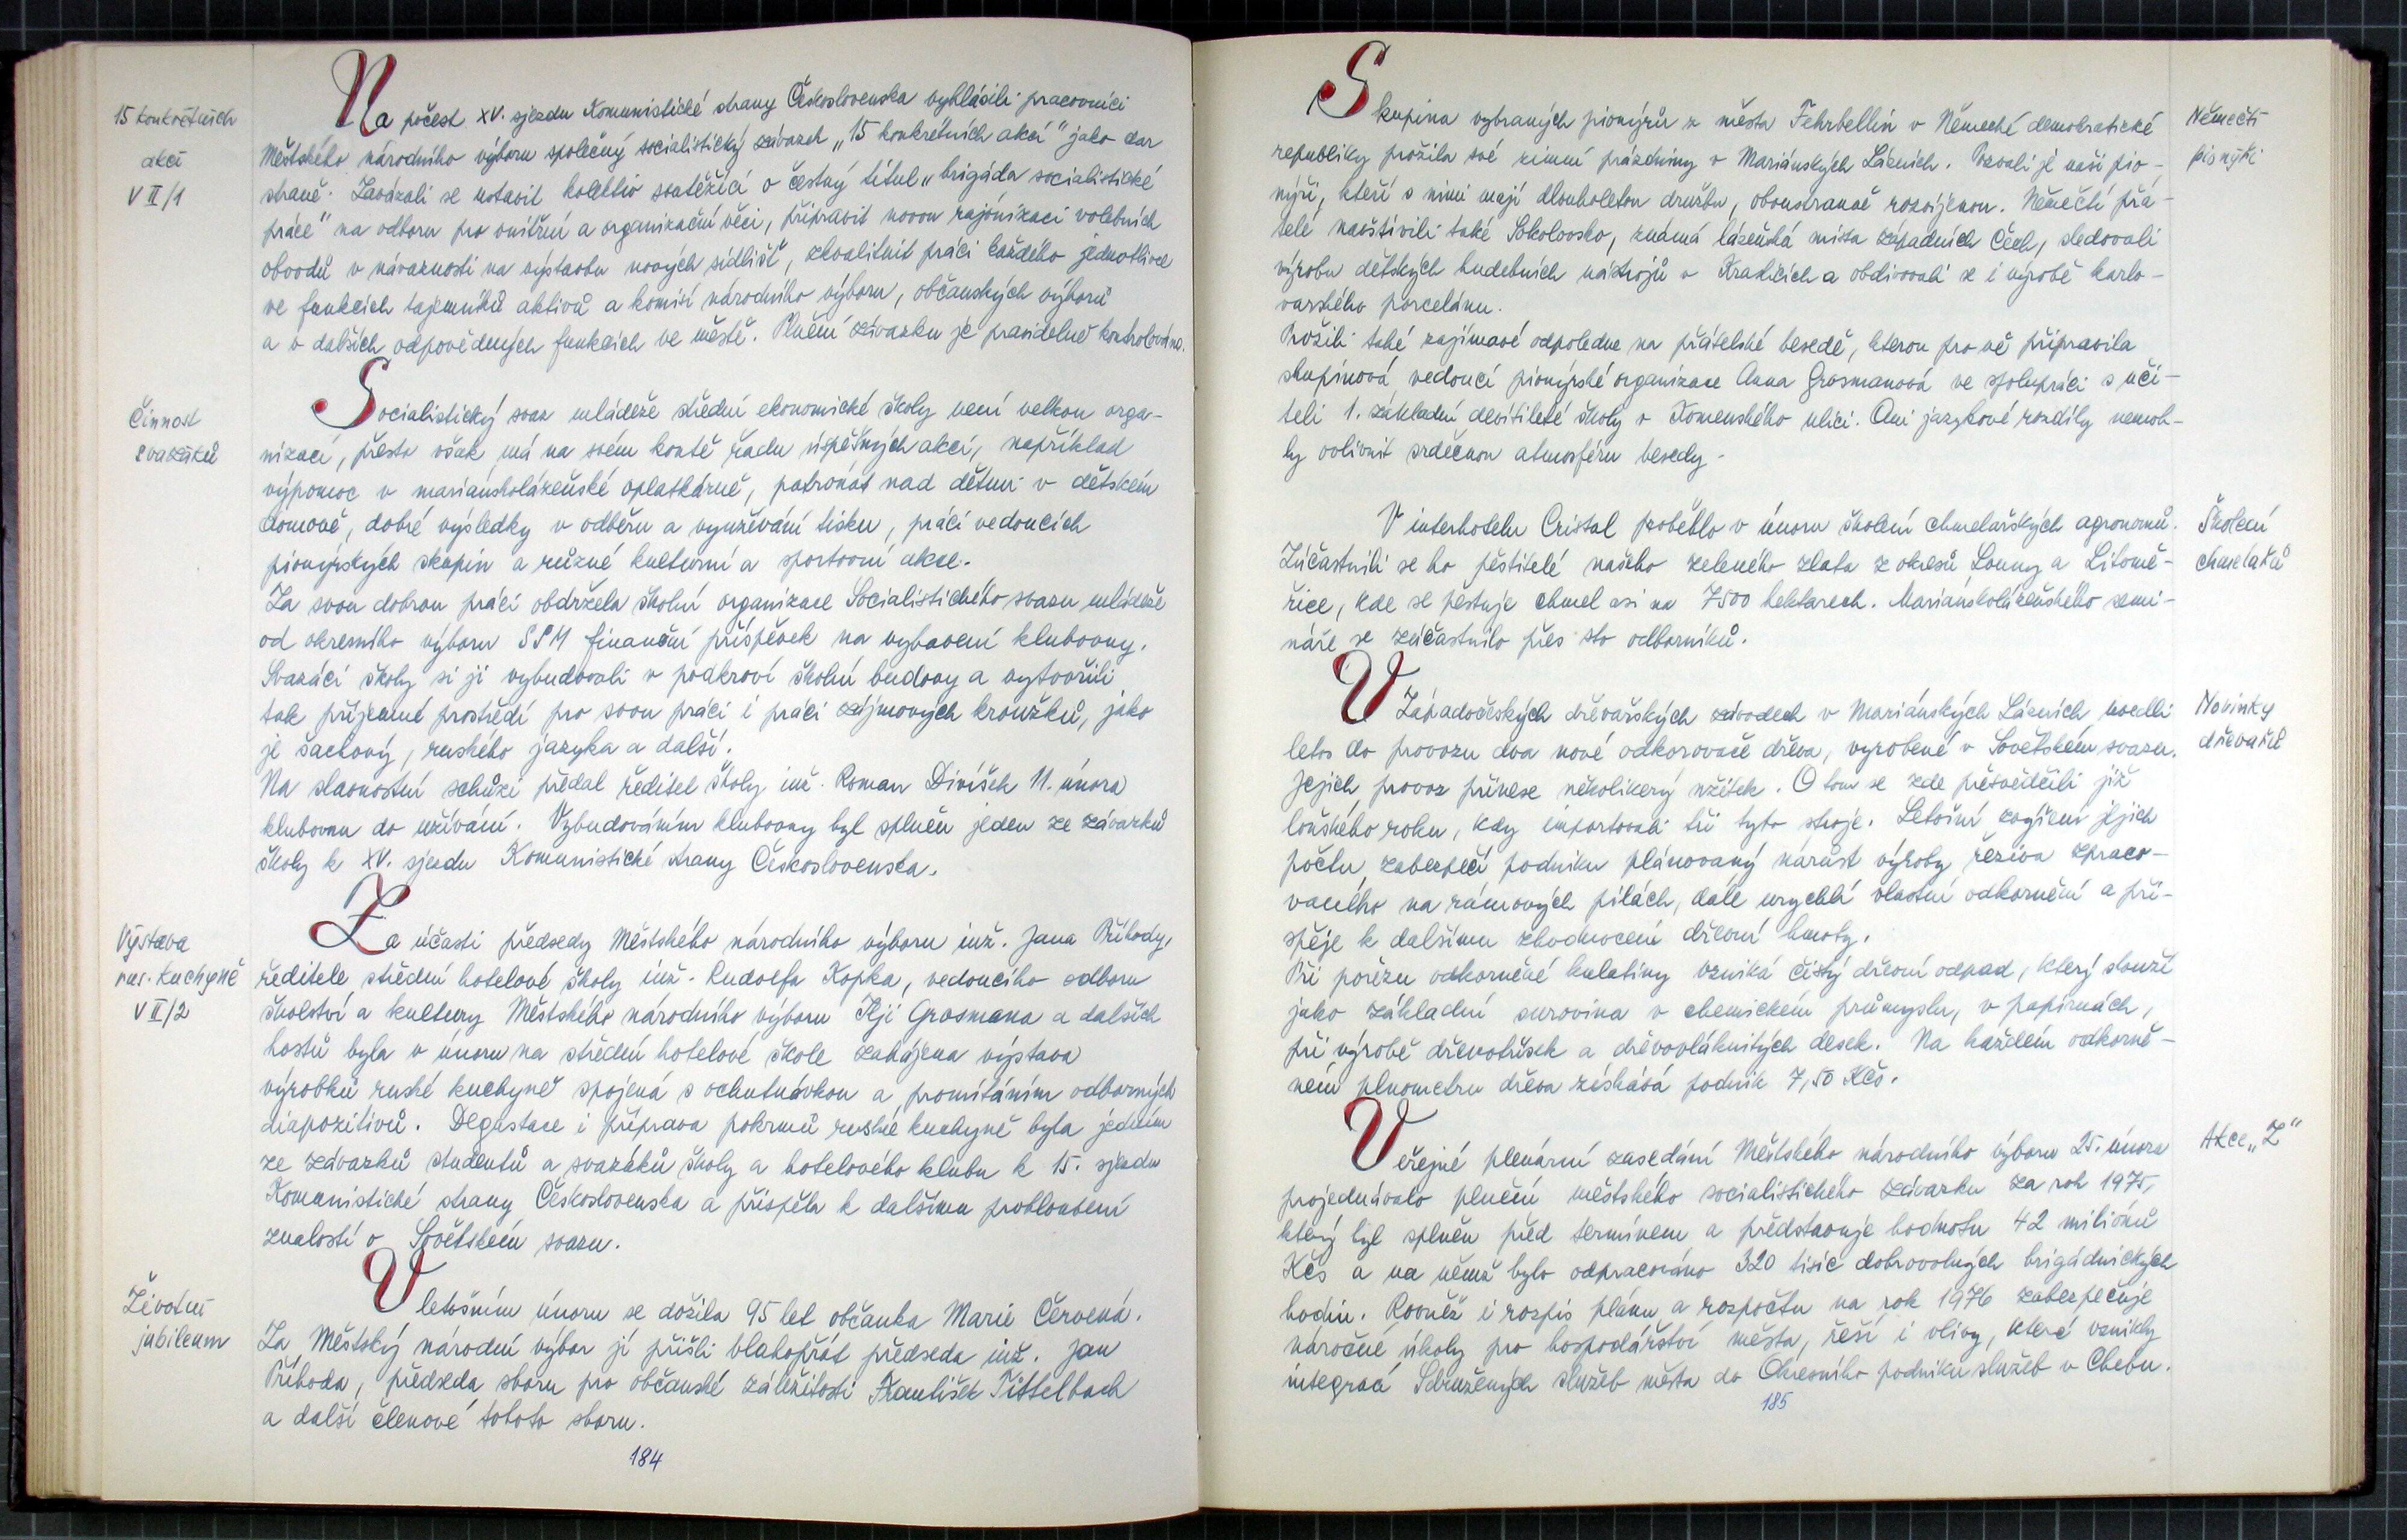 15 konkrétních
akcí
V II/1
Na počest XV. sjezdu Komunistické strany Československa vyhlásili pracovníci
Městského národního výboru společný socialistický závazek „15 konkrétních akcí" jako dar
straně. Zavázali se ustavit kolektiv soutěžící o čestný titul „brigáda socialistické
práce" na odboru pro vnitřní a organizační věci, připravit novou rajónizaci volebních
obvodů v návaznosti na výstavbu nových sídlišť, zkvalitnit práci každého jednotlivce
ve funkcích tajemníků aktivů a komisí národního výboru, občanských výborů
a v dalších odpovědných funkcích ve městě. Plnění závazku je pravidelně kontrolováno.
Činnost
svazáků
Socialistický svaz mládeže střední ekonomické školy není velkou orga-
nizací, přesto však má na svém kontě řadu úspěšných akcí, například
výpomoc v mariánskolázeňské oplatkárně, patronát nad dětmi v dětském
domově, dobré výsledky v odběru a využívání tisku, práci vedoucích
pionýrských skupin a různé kulturní a sportovní akce.
Za svou dobrou práci obdržela školní organizace Socialistického svazu mládeže
od okresního výboru SSM finanční příspěvek na vybavení klubovny.
Svazáci školy si ji vybudovali v podkroví školní budovy a vytvořili
tak příjemné prostředí pro svou práci i práci zájmových kroužků, jako
je šachový, ruského jazyka a další.
Na slavnostní schůzi předal ředitel školy inž. Roman Divíšek 11. února
klubovnu do užívání. Vybudováním klubovny byl splněn jeden ze závazků
školy k XV. sjezdu Komunistické strany Československa.
Výstava
rus. kuchyně
V II/2
Za účasti předsedy Městského národního výboru inž. Jana Příhody,
ředitele střední hotelové školy inž. Rudolfa Kopka, vedoucího odboru
školství a kultury Městského národního výboru Ilji Grosmana a dalších
hostů byla v únoru na střední hotelové škole zahájena výstava
výrobků ruské kuchyně spojená s ochutnávkou a promítáním odborných
diapozitivů. Degustace i příprava pokrmů ruské kuchyně byla jedním
ze závazků studentů a svazáků školy a hotelového klubu k 15. sjezdu
Komunistické strany Československa a přispěla k dalšímu prohloubení
znalostí o Sovětském svazu.
Životní
jubileum
V letošním únoru se dožila 95 let občanka Marie Červená.
Za Městský národní výbor jí přišli blahopřát předseda inž. Jan
Příhoda, předseda sboru pro občanské záležitosti František Tittelbach
a další členové tohoto sboru.
184
Skupina vybraných pionýrů z města Fehrbellin v Německé demokratické
republiky prožila své zimní prázdniny v Mariánských Lázních. Pozvali je naši pio-
nýři, kteří s nimi mají dlouholetou družbu, oboustranně rozvíjenou. Němečtí přá-
telé navštívili také Sokolovsko, známá lázeňská místa západních Čech, sledovali
výrobu dětských hudebních nástrojů v Kraslicích a obdivovali se i výrobě karlo-
varského porcelánu.
Prožili také zajímavé odpoledne na přátelské besedě, kterou pro ně připravila
skupinová vedoucí pionýrské organizace Anna Grosmanová ve spolupráci s uči-
teli 1. základní devítileté školy v Komenského ulici. Ani jazykové rozdíly nemoh-
ly ovlivnit srdečnou atmosféru besedy.
Němečtí
pionýři
V interhotelu Cristal proběhlo v únoru školení chmelařských agronomů.
Zúčastnili se ho pěstitelé našeho zeleného zlata z okresů Louny a Litomě-
řice, kde se pěstuje chmel asi na 7500 hektarech. Mariánskolázeňského semi-
náře se zúčastnilo přes sto odborníků.
Školení
chmelařů
V Západočeských dřevařských závodech v Mariánských Lázních uvedli
letos do provozu dva nové odkorovače dřeva, vyrobené v Sovětském svazu.
Jejich provoz přinese několikerý užitek. O tom se zde přesvědčili již
loňského roku, kdy importovali tři tyto stroje. Letošní zvýšení jejich
počtu zabezpečí podniku plánovaný nárůst výroby řeziva zpraco-
vaného na rámových pilách, dále urychlí vlastní odkornění a při-
spěje k dalšímu zhodnocení dřevní hmoty.
Při pořezu odkorněné kulatiny vzniká čistý dřevní odpad, který slouží
jako základní surovina v chemickém průmyslu, v papírnách,
při výrobě dřevotřísek a dřevovláknitých desek. Na každém odkorně-
ném plnometru dřeva získává podnik 7,50 Kčs.
Novinky
dřevařů
Veřejné plenární zasedání Městského národního výboru 25. února
projednávalo plnění městského socialistického závazku za rok 1975,
který byl splněn před termínem a představuje hodnotu 42 miliónů
Kčs a na němž bylo odpracováno 320 tisíc dobrovolných brigádnických
hodin. Rovněž i rozpis plánu a rozpočtu na rok 1976 zabezpečuje
náročné úkoly pro hospodářství města, řeší i vlivy, které vznikly
integrací Sdružených služeb města do Okresního podniku služeb v Chebu.
Akce „Z"
185